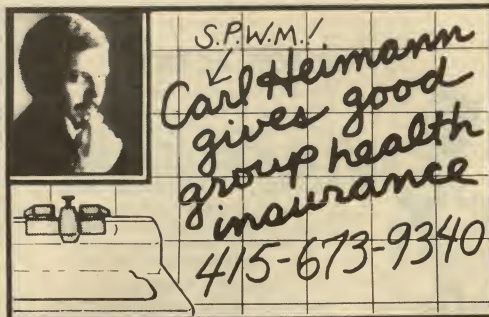 S.P.W.M.!
Carl Heimann
gives good
group health
insurance
415-673-9340